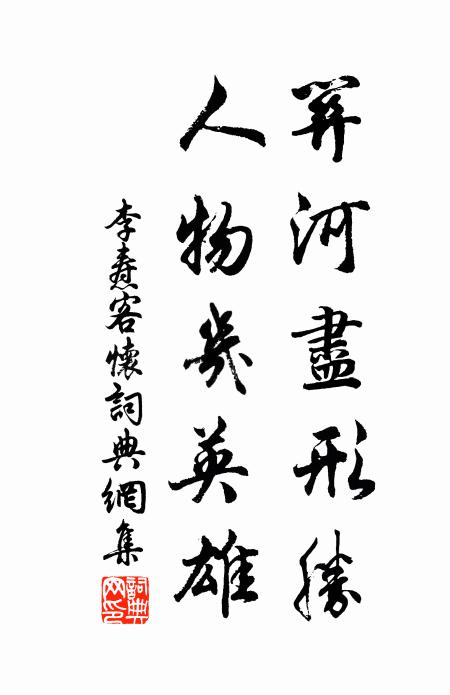 關河盡形勝
人物幾英雄
李燾客懷詞典網集
詞典网印